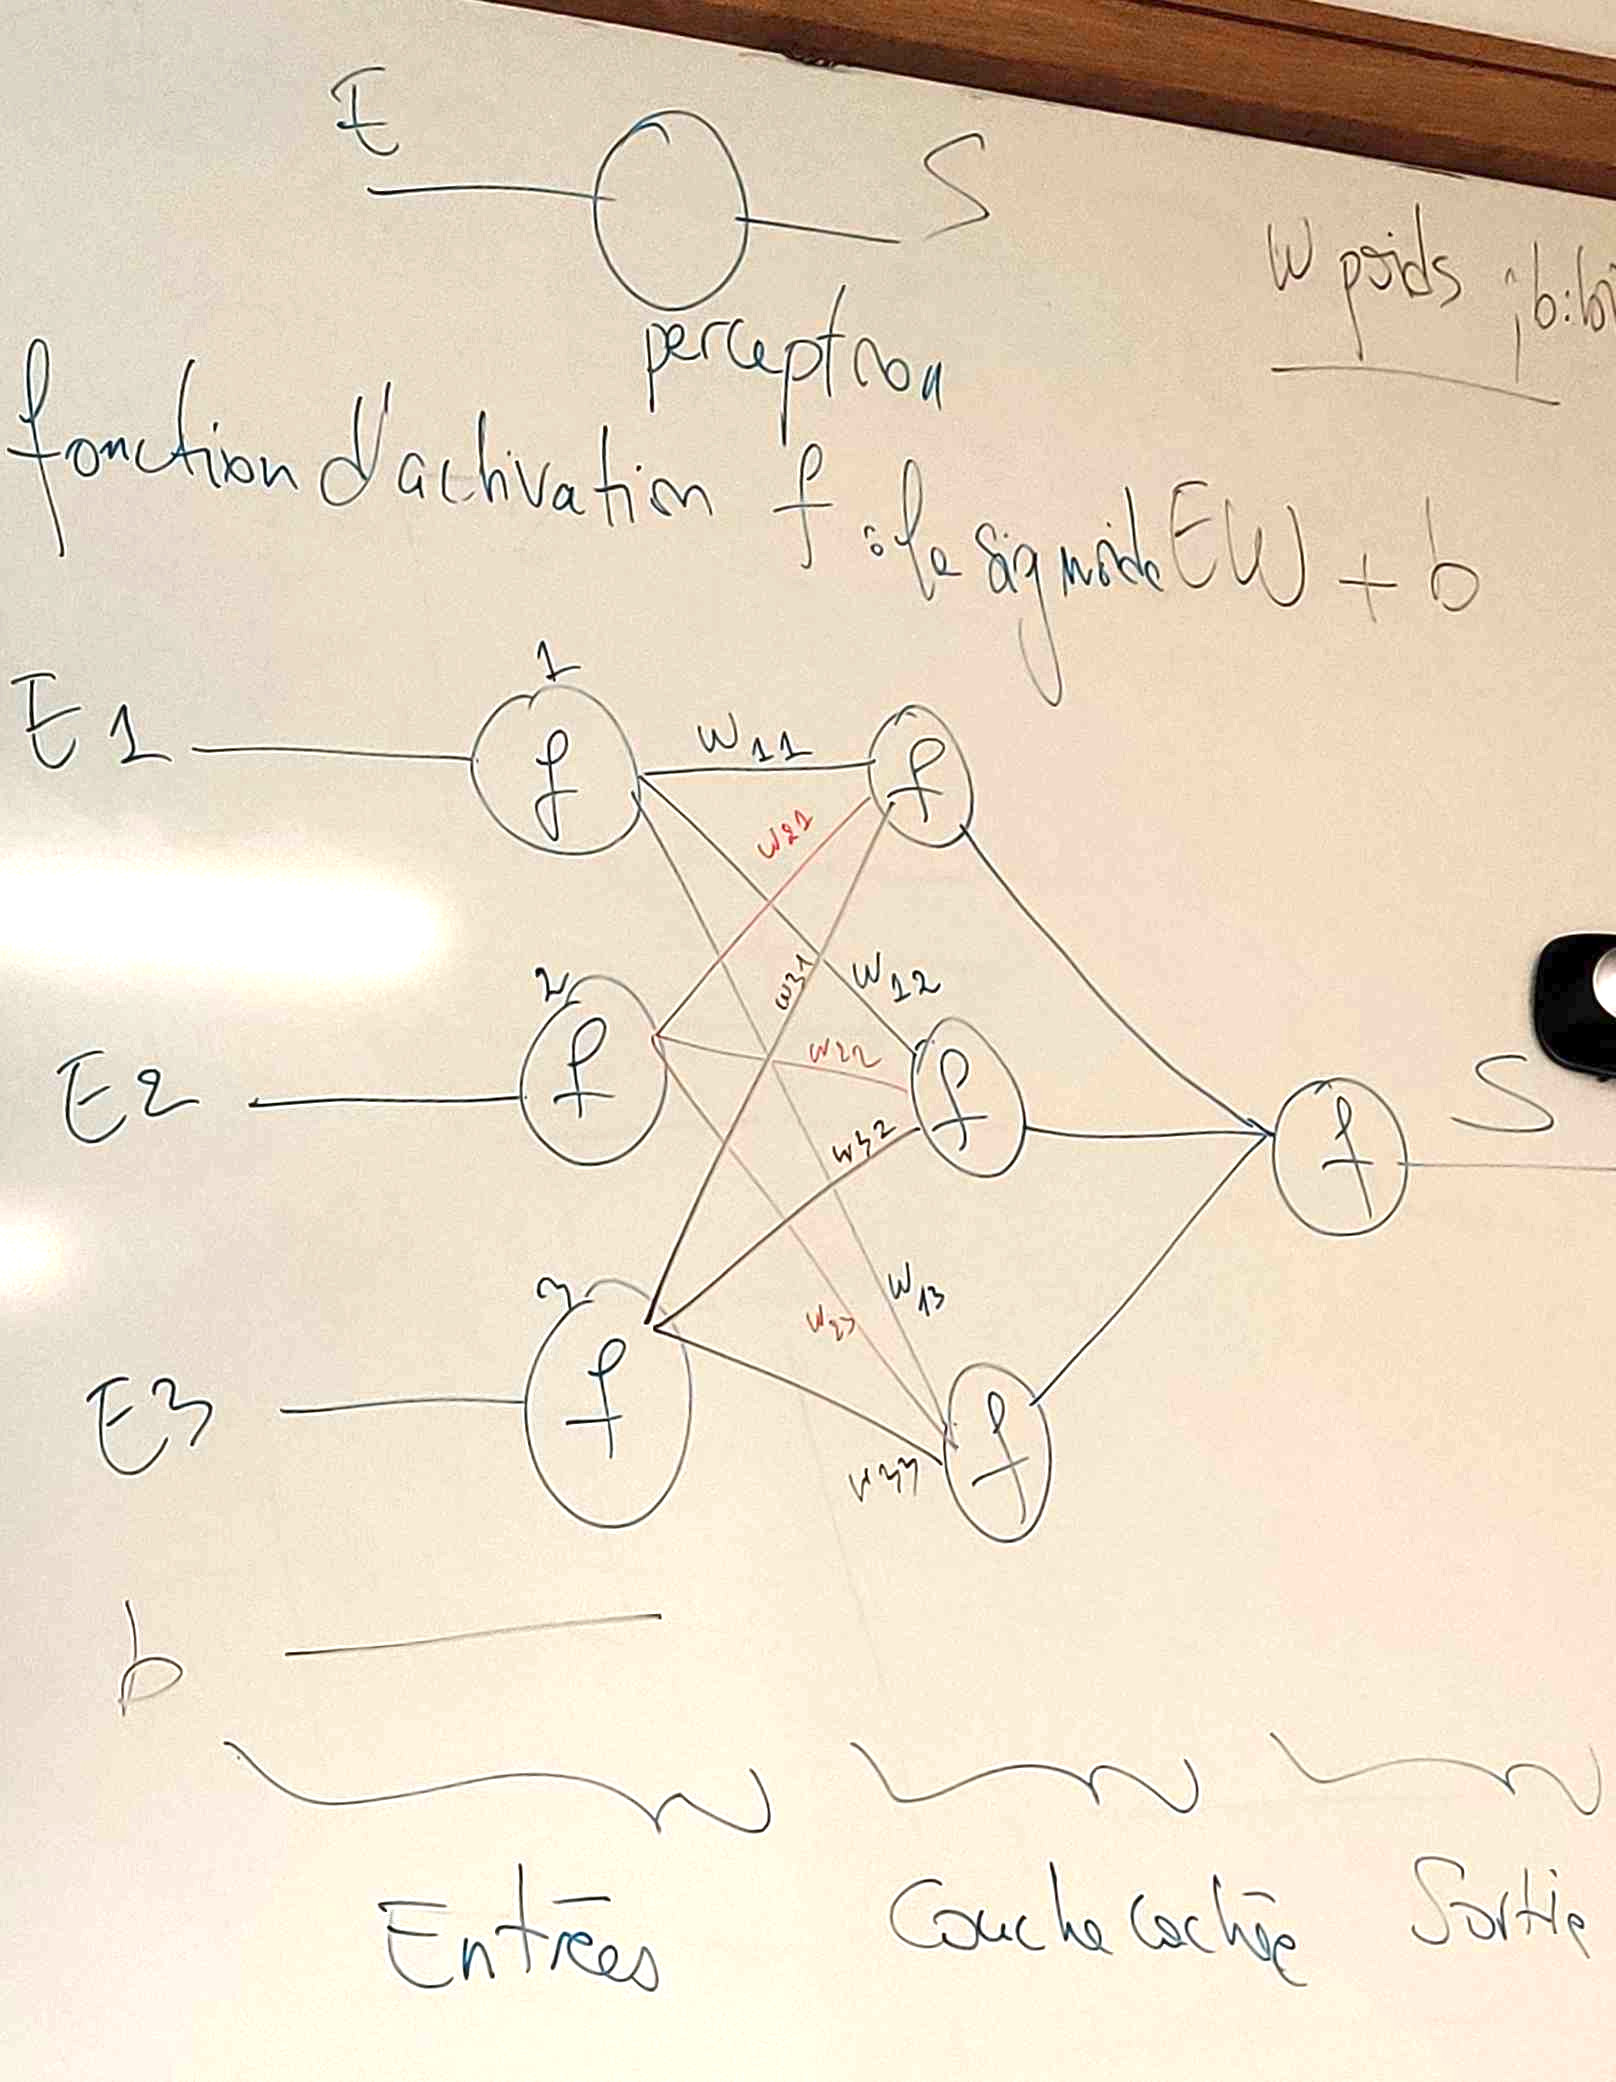 E
S
perceptron
W poids ; b:bi
fonction d'activation f : le sigmoïde EW + b
E1
1
f
W11
f
W21
W31
W12
E2
2
f
W22
f
W32
f
S
E3
3
f
W23
W13
W33
f
b
Entrées
Couche cachée
Sortie